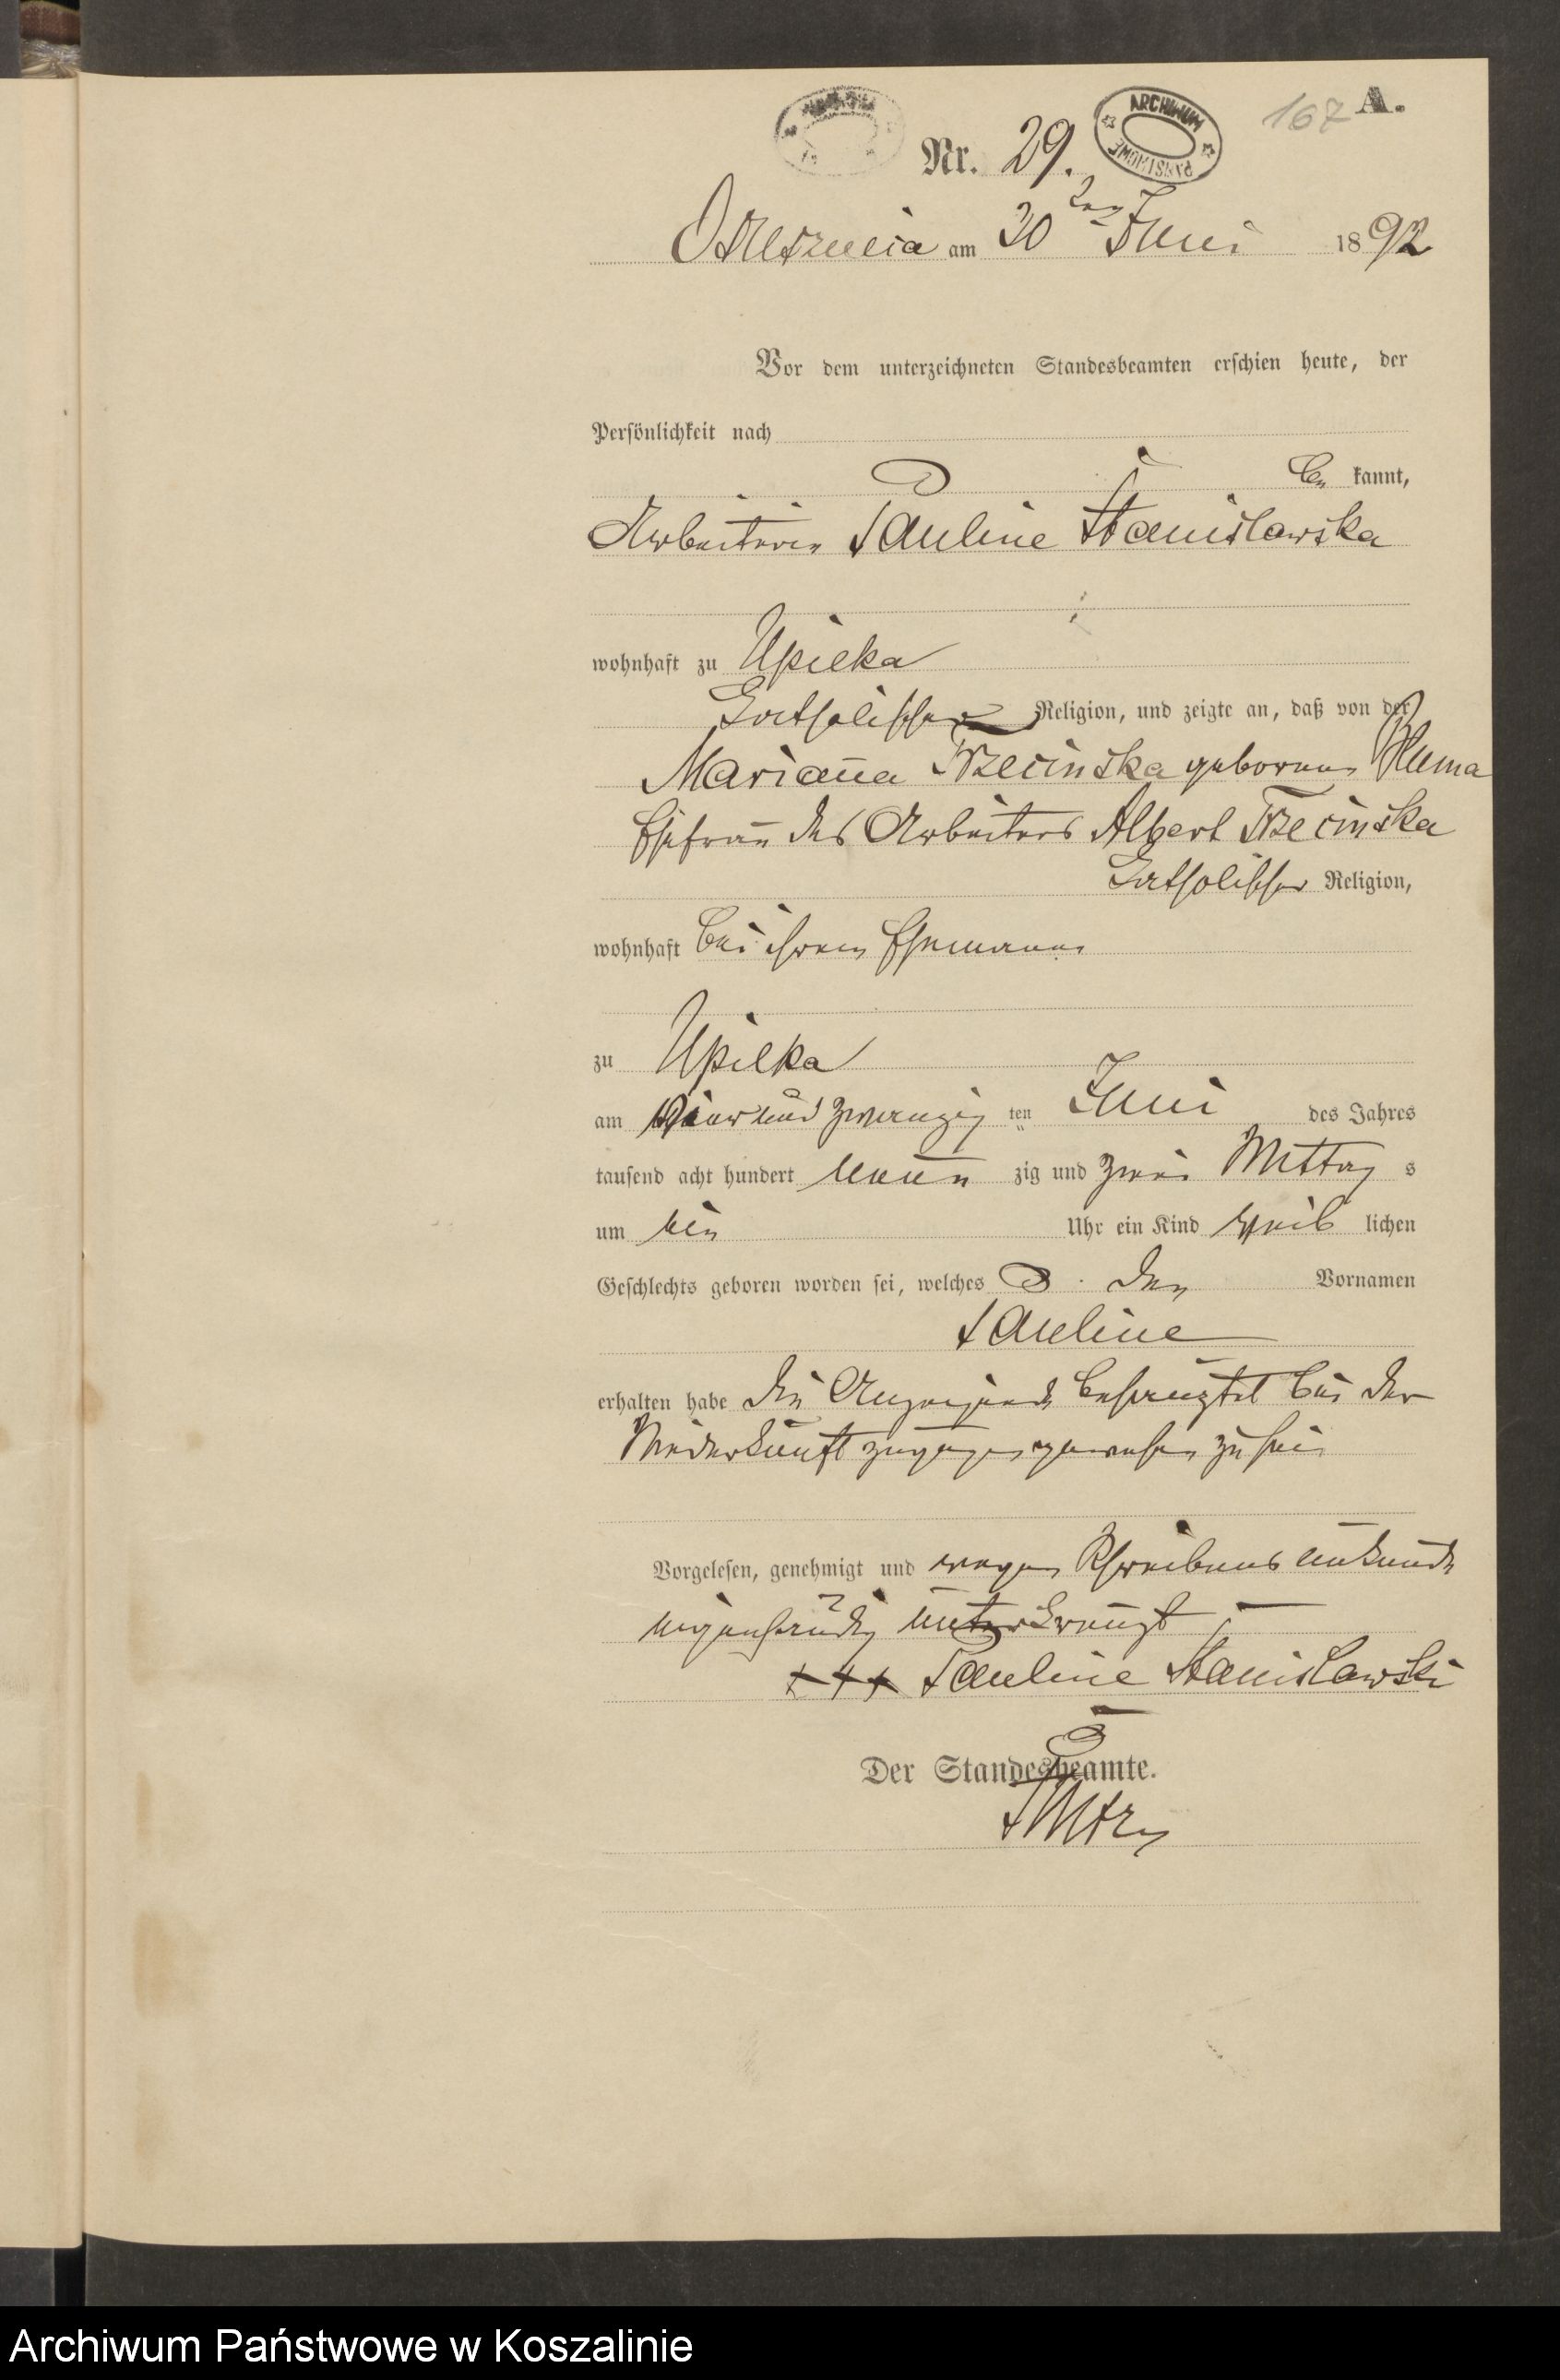 167 A.
Nr. 29.
ARCHIWUM PAŃSTWOWE
am 30ten Juni 1892
Vor dem unterzeichneten Standesbeamten erschien heute, der
Persönlichkeit nach
be kannt,
Arbeiterin Pauline Stanislawska
wohnhaft zu Upilka
Katholischer Religion, und zeigte an, daß von der
Marianna Trzecinska geborenen
Ehefrau des Arbeiters Albert Trzecinska
Katholischer Religion,
wohnhaft bei ihrem Ehemanne
zu Upilka
am vier und zwanzig ten Juni des Jahres
tausend acht hundert neun zig und zwei Mittag s
um ein Uhr ein Kind weib lichen
Geschlechts geboren worden sei, welches den Vornamen
Pauline
erhalten habe Die Anzeigende bei der
Niederkunft zugegen gewesen zu sein
Vorgelesen, genehmigt und wegen Schreibens unkunde
eigenhändig unterkreuzt
+++ Pauline Stanislawski
Der Standesbeamte.
Archiwum Państwowe w Koszalinie